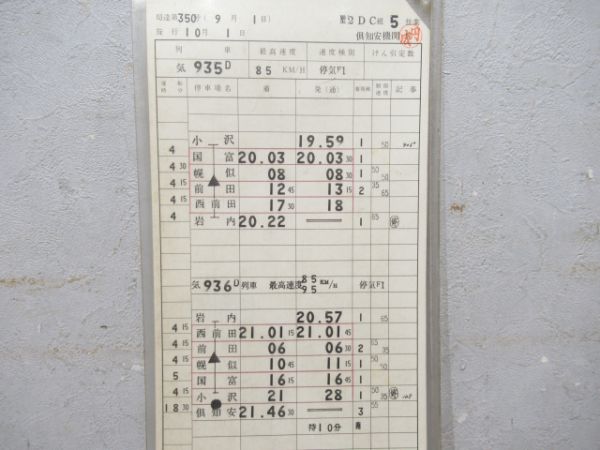 第350号 (9月 1日) DC組 5仕業
施行 10月 1日 倶知安機関
列車 最高速度 速度種別 けん引定数
気 935D 85 KM/H 停気F1
停車場名 着 発(通) 記事
小沢 19.59 1 50
4 国富 20.03 20.03 30 1
4 30 幌似 08 08 30 1 50 50
4 15 前田 12 45 13 15 2 35 65
4 15 西前田 17 30 18
4 岩内 20.22 1 65
気 936D 列車 最高速度 85 95 KM/H 停気F1
岩内 20.57 1 65
4 15 西前田 21.01 15 21.01 45
4 15 前田 06 06 30 2 65 35
4 15 幌似 10 45 11 15 1 50
5 国富 16 15 16 45 1 50
4 15 小沢 21 28 1 35
18 30 倶知安 21.46 30 3 55
待10分